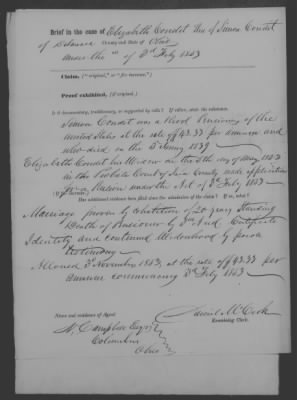 Brief in the case of Elizabeth Condit Wid of Simon Condit
of Delaware County and State of Ohio
under the Act of 3d Feby 1853
Claim, ("original," or "for increase.")
Proof exhibited, (if original.)
Is it documentary, traditionary, or supported by rolls? If either, state the substance.
Simon Condit was a Pensioner of the
United States at the rate of $43.33 per annum and
who died on the 5 Jany 1839
Elizabeth Condit his Widow on the 5th day of May 1853
in the Probate Court of County made application
(If for increase.) for a Pension under the Act of 3d Feby 1853
Has additional evidence been filed since the admission of the claim? If so, what?
Marriage proven by cohabitation of years standing
Death of Pensioner by Certificate
Identity and continued Widowhood by
testimony
Allowed 3d November 1853, at the rate of $43.33 per
annum commencing 3d Feby 1853
Name and residence of Agent
N. Campbell Esqr
Columbus
Ohio
Daniel McCook
Examining Clerk.